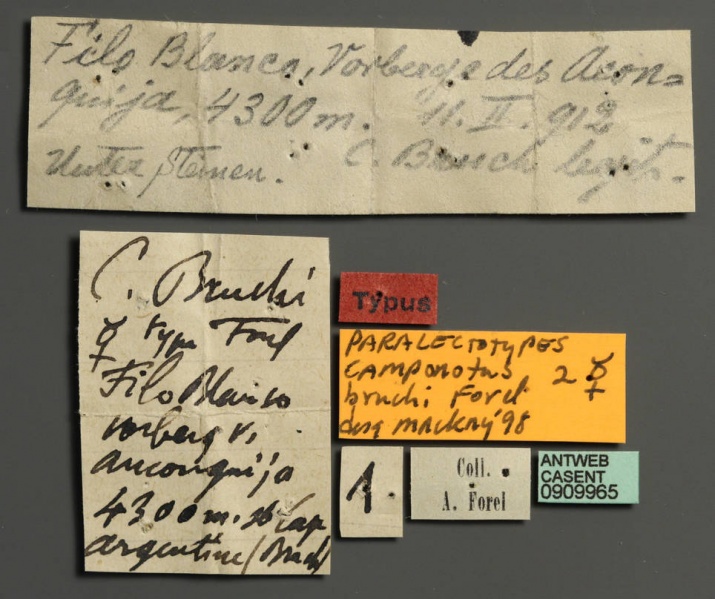 Filo Blanco, Vorberge des Acon=
quija, 4300 m. 11. II. 912
Unter Steinen. C. Bruch legit.
C. Bruchi
☿ type Forel
Filo Blanco
vorberg v.
anconquija
4300 m.
argentine (Bruch)
Typus
PARALECTOTYPES
CAMPONOTUS 2 ☿
bruchi Forel
des MACKAY '98
1
Coll.
A. Forel
ANTWEB
CASENT
0909965